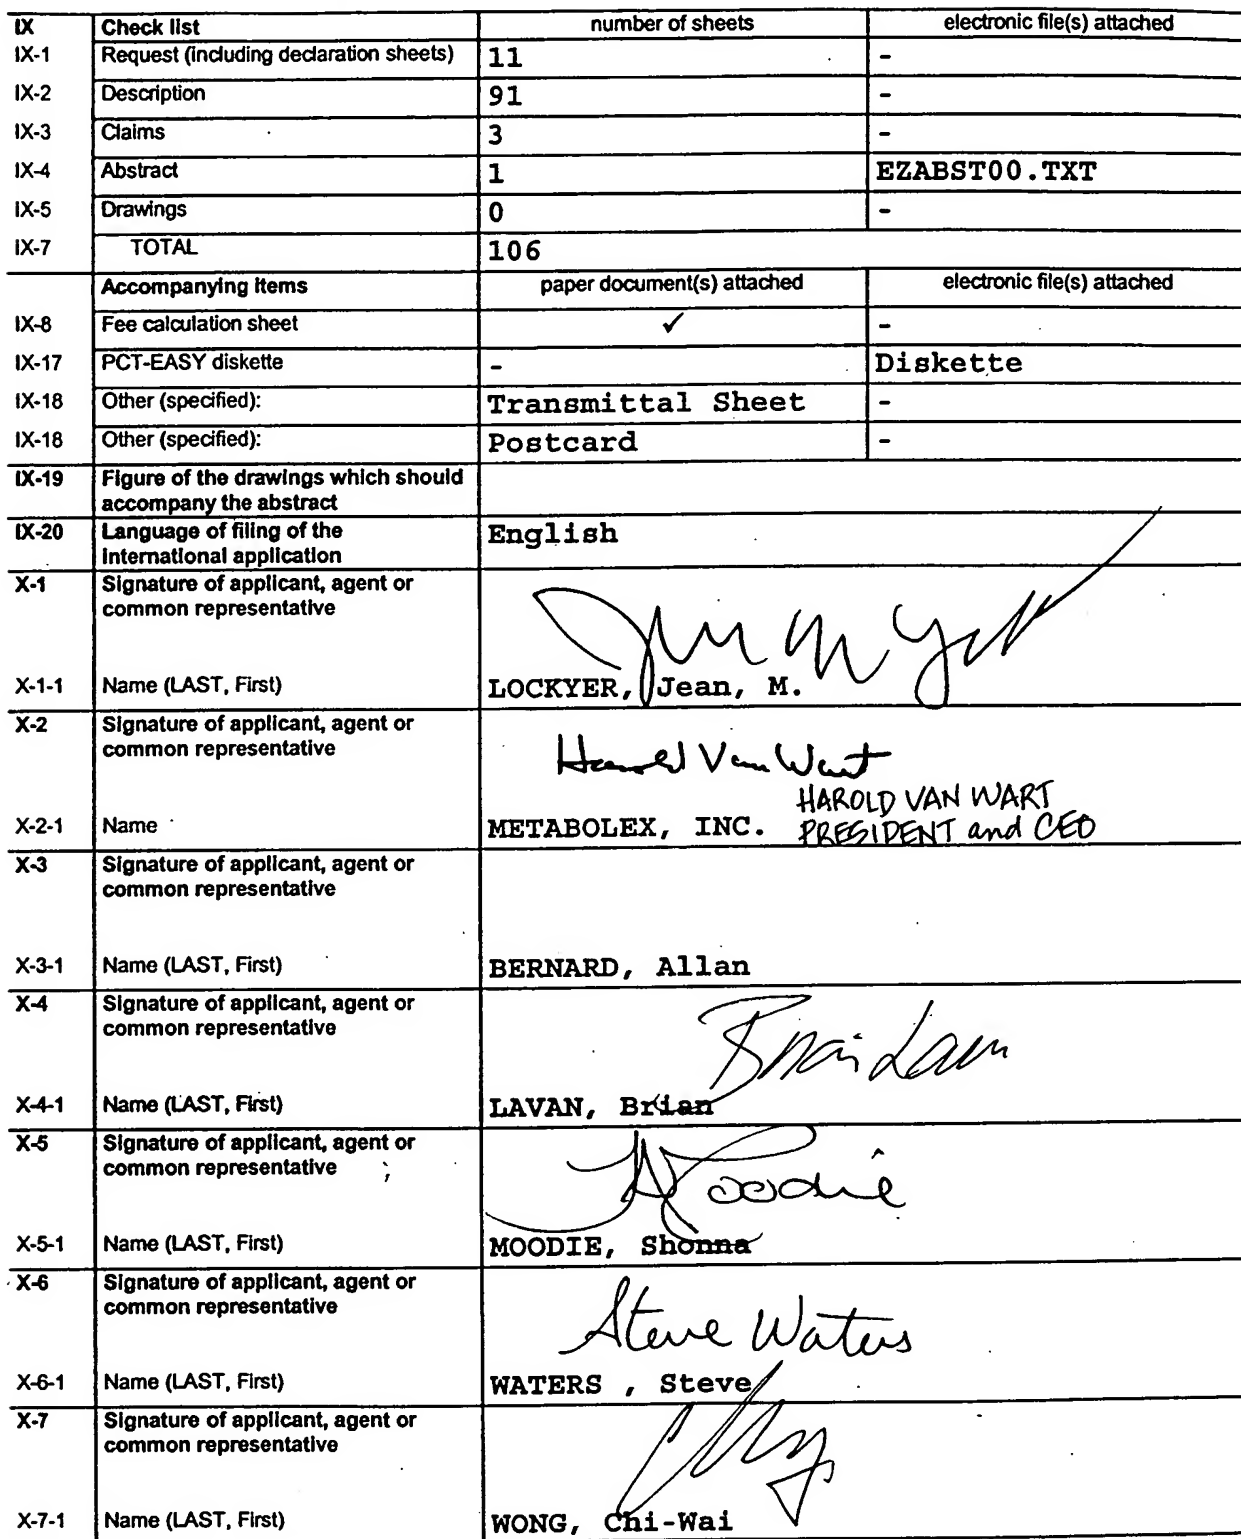 IX Check list number of sheets electronic file(s) attached
IX-1 Request (including declaration sheets) 11 -
IX-2 Description 91 -
IX-3 Claims 3 -
IX-4 Abstract 1 EZABST00.TXT
IX-5 Drawings 0 -
IX-7 TOTAL 106
Accompanying Items paper document(s) attached electronic file(s) attached
IX-8 Fee calculation sheet ✓ -
IX-17 PCT-EASY diskette - Diskette
IX-18 Other (specified): Transmittal Sheet -
IX-18 Other (specified): Postcard -
IX-19 Figure of the drawings which should
accompany the abstract
IX-20 Language of filing of the English
international application
X-1 Signature of applicant, agent or
common representative
X-1-1 Name (LAST, First) LOCKYER, Jean, M.
X-2 Signature of applicant, agent or
common representative
Harold Van Wart
HAROLD VAN WART
X-2-1 Name METABOLEX, INC. PRESIDENT and CEO
X-3 Signature of applicant, agent or
common representative
X-3-1 Name (LAST, First) BERNARD, Allan
X-4 Signature of applicant, agent or
common representative
X-4-1 Name (LAST, First) LAVAN, Brian
X-5 Signature of applicant, agent or
common representative
X-5-1 Name (LAST, First) MOODIE, Shonna
X-6 Signature of applicant, agent or
common representative
Steve Waters
X-6-1 Name (LAST, First) WATERS , Steve
X-7 Signature of applicant, agent or
common representative
X-7-1 Name (LAST, First) WONG, Chi-Wai